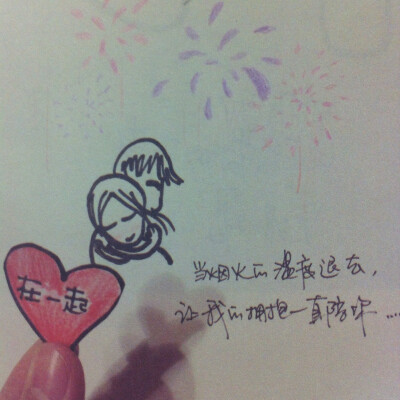 在一起
当烟火的温度退去，
让我的拥抱一直陪你....